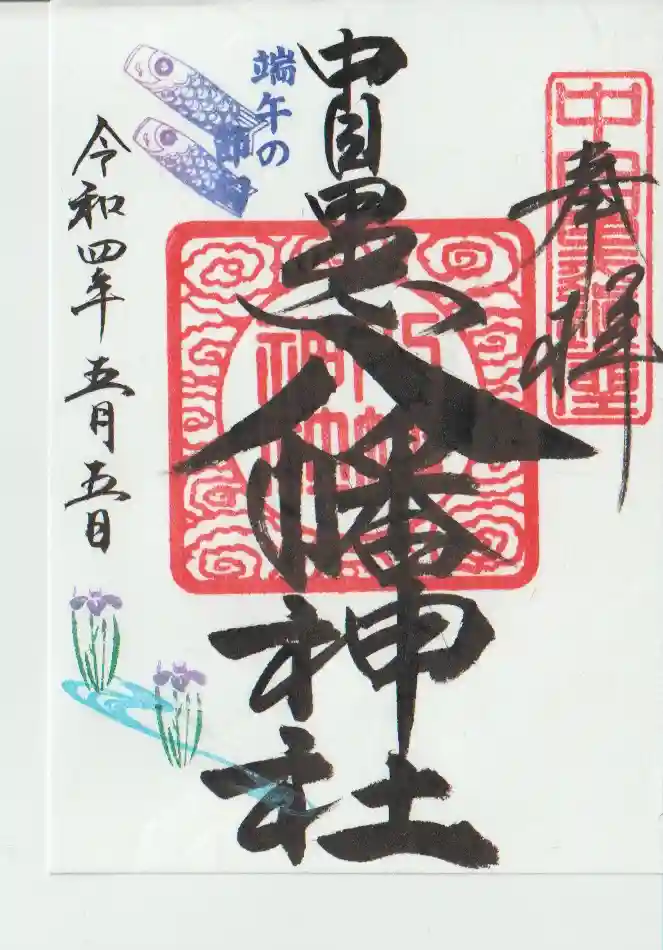 奉拝
中目黒八幡神社
端午の
節句
令和四年五月五日